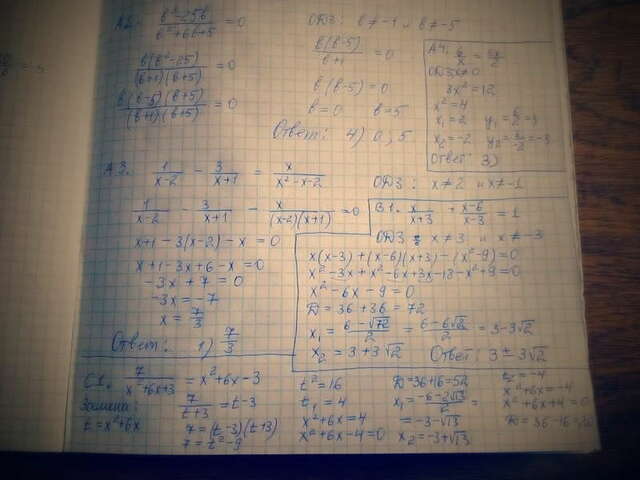 А2. (b³-25b)/(b²+6b+5) = 0
ОДЗ: b ≠ -1 и b ≠ -5
b(b²-25)/((b+1)(b+5)) = 0
b(b-5)(b+5)/((b+1)(b+5)) = 0
b(b-5)/(b+1) = 0
b(b-5) = 0
b = 0 b = 5
Ответ: 4) 0, 5
А4. 6/x = 3x/2
ОДЗ x≠0
3x² = 12
x² = 4
x₁ = 2 y₁ = 6/2 = 3
x₂ = -2 y₂ = 6/-2 = -3
Ответ: 3)
А3. 1/(x-2) - 3/(x+1) = x/(x²-x-2)
ОДЗ: x ≠ 2 и x ≠ -1
1/(x-2) - 3/(x+1) - x/((x-2)(x+1)) = 0
x+1-3(x-2)-x = 0
x+1-3x+6-x = 0
-3x+7 = 0
-3x = -7
x = 7/3
Ответ: 1) 7/3
В1. x/(x+3) + (x-6)/(x-3) = 1
ОДЗ: x ≠ 3 и x ≠ -3
x(x-3)+(x-6)(x+3)-(x²-9)=0
x²-3x+x²-6x+3x-18-x²+9=0
x²-6x-9=0
D = 36+36 = 72
x₁ = (6-√72)/2 = (6-6√2)/2 = 3-3√2
x₂ = 3+3√2
Ответ: 3 ± 3√2
С1. 7/(x²+6x+3) = x²+6x-3
Замена:
t = x²+6x
7/(t+3) = t-3
7 = (t-3)(t+3)
7 = t²-9
t² = 16
t₁ = 4
x²+6x = 4
x²+6x-4=0
D = 36+16=52
x₁ = (-6-2√13)/2 =
= -3-√13
x₂ = -3+√13
t₂ = -4
x²+6x = -4
x²+6x+4=0
D = 36-16=20